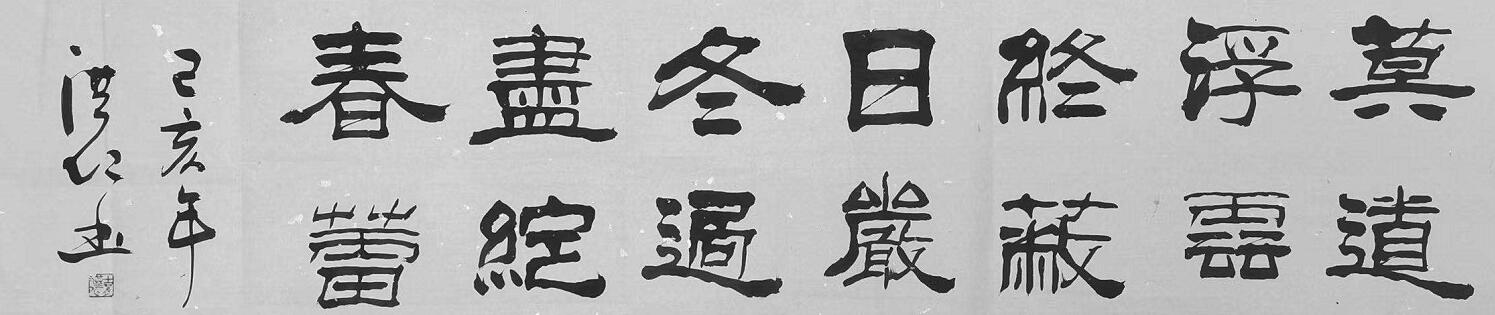 莫道
浮雲
終蔽
日嚴
冬過
盡綻
春蕾
己亥年
洪仁書